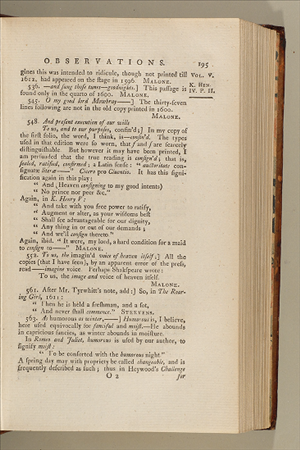 OBSERVATIONS. 195
gines this was intended to ridicule, though not printed till VOL. V.
1612, had appeared on the stage in 1596. MALONE.
536. —and sung those tunes—goodnights.] This passage is K. HEN.
found only in the quarto of 1600. MALONE. IV. P. II.
545. O my good lord Mowbray——] The thirty-seven
lines following are not in the old copy printed in 1600.
MALONE.
548. And present execution of our wills
To us, and to our purposes, confin'd;] In my copy of
the first folio, the word, I think, is—consin'd. The types
used in that edition were so worn, that f and ſ are scarcely
distinguishable. But however it may have been printed, I
am persuaded that the true reading is consign'd; that is,
sealed, ratified, confirmed; a Latin sense: "auctoritate con-
signatæ literæ——" Cicero pro Cluentio. It has this signi-
fication again in this play:
" And (Heaven consigning to my good intents)
" No prince nor peer &c."
Again, in K. Henry V:
" And take with you free power to ratify,
" Augment or alter, as your wisdoms best
" Shall see advantageable for our dignity,
" Any thing in or out of our demands;
" And we'll consign thereto."
Again, ibid. " It were, my lord, a hard condition for a maid
to consign to——" MALONE.
552. To us, the imagin'd voice of heaven itself;] All the
copies (that I have seen), by an apparent error of the press,
read——imagine voice. Perhaps Shakspeare wrote:
To us, the image and voice of heaven itself.
MALONE.
561. After Mr. Tyrwhitt's note, add:] So, in The Roar-
ing Girl, 1611:
" Then he is held a freshman, and a sot,
" And never shall commence." STEEVENS.
563. As humorous as winter,——] Humorous is, I believe,
here used equivocally for fanciful and moist.—He abounds
in capricious fancies, as winter abounds in moisture.
In Romeo and Juliet, humorous is used by our author, to
signify moist:
" To be consorted with the humorous night."
A spring day may with propriety be called changeable, and is
frequently described as such; thus in Heywood's Challenge
O 2 for